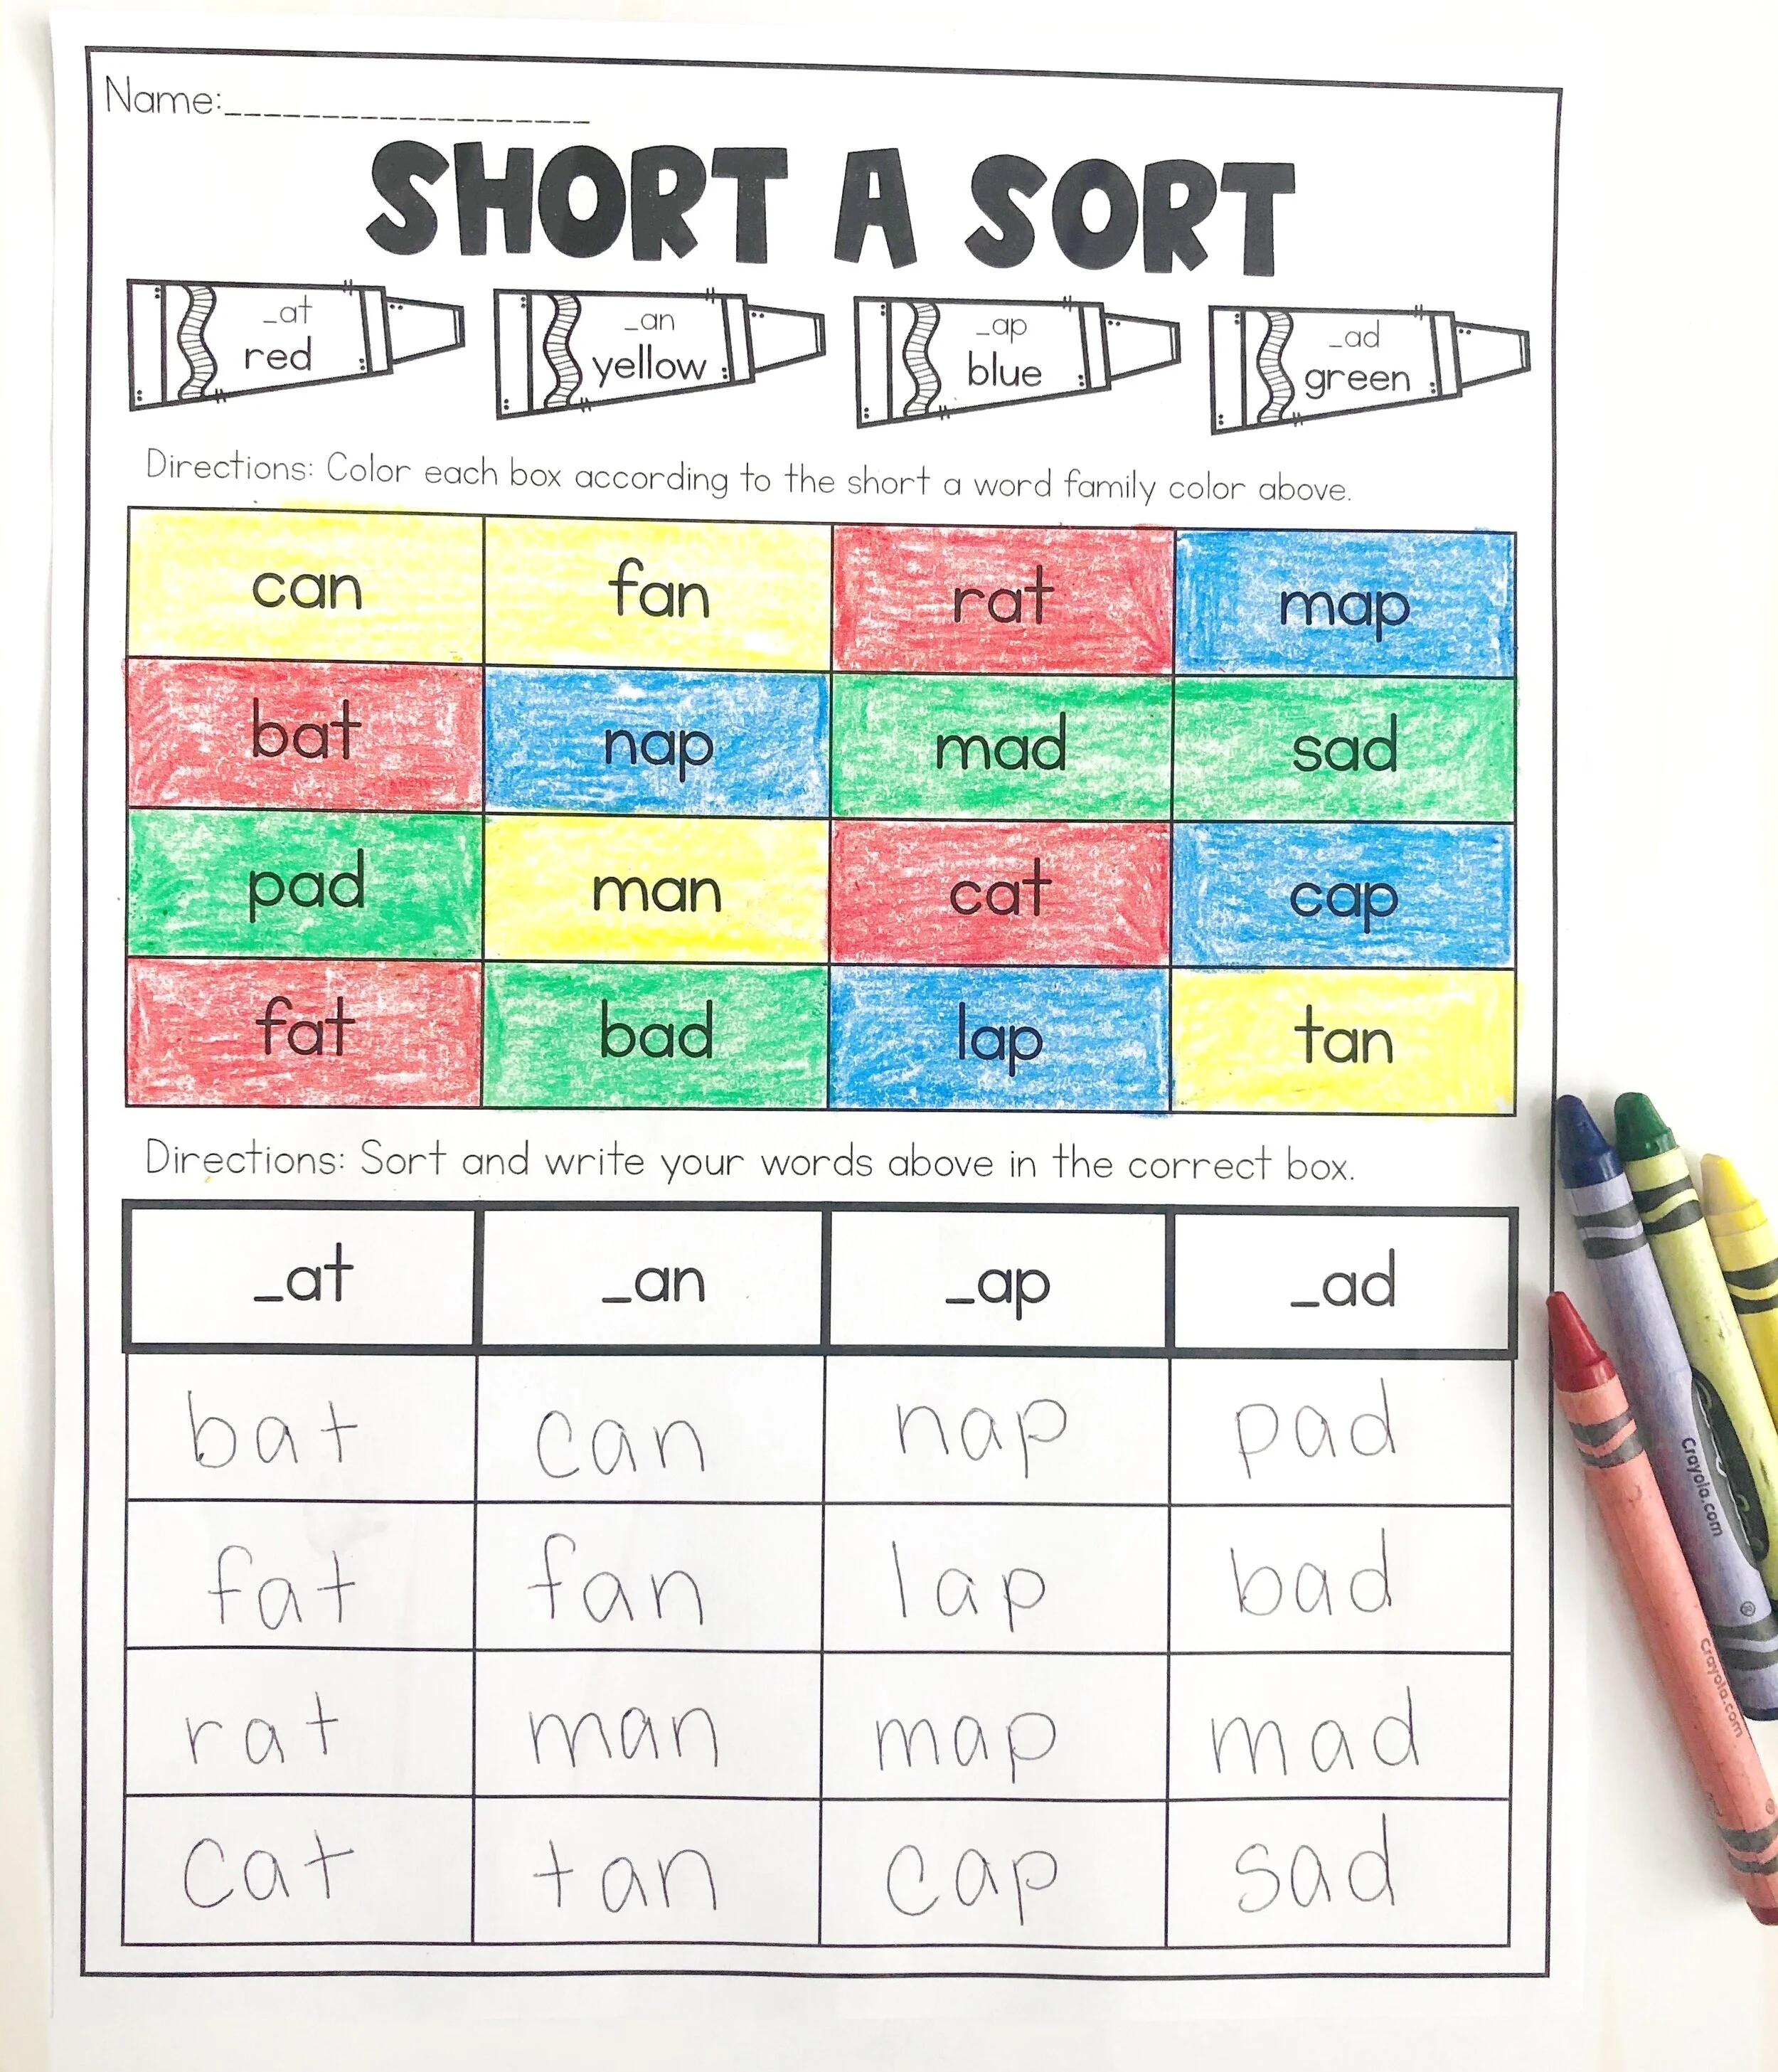 Name:___________________
SHORT A SORT
_at _an _ap _ad
red yellow blue green
Directions: Color each box according to the short a word family color above.
can fan rat map
bat nap mad sad
pad man cat cap
fat bad lap tan
Directions: Sort and write your words above in the correct box.
_at _an _ap _ad
bat can nap pad
fat fan lap bad
rat man map mad
cat tan cap sad
Crayola.com
®
Crayola.com
®